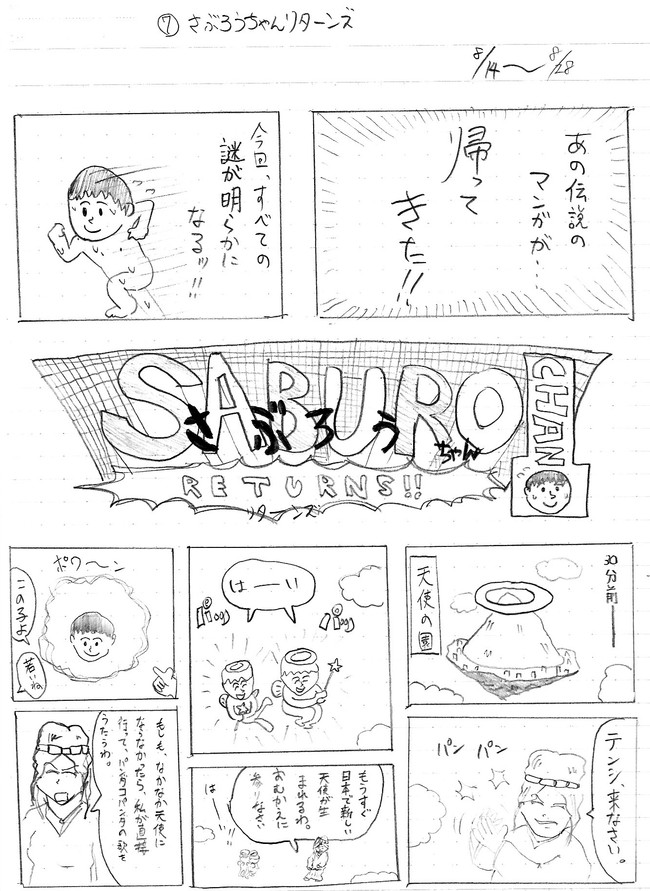 ⑦ さぶろうちゃんリターンズ
8/14〜8/28
あの伝説の
マンガが…
帰って
きた!!
今回、すべての
謎が明らかに
なるッ!!
SABURO
CHAN
さぶろうちゃん
RETURNS!!
リターンズ
30分前──
天使の園
パン パン
テンシ、来なさい。
はーい
もうすぐ
日本で新しい
天使が生
まれるわ。
おむかえに
参りなさい
はー
ポワ〜ン
この子よ
若いね
もしも、なかなか天使に
ならなかったら、私が直接
行って、パンタコパンタの歌を
うたうわ。